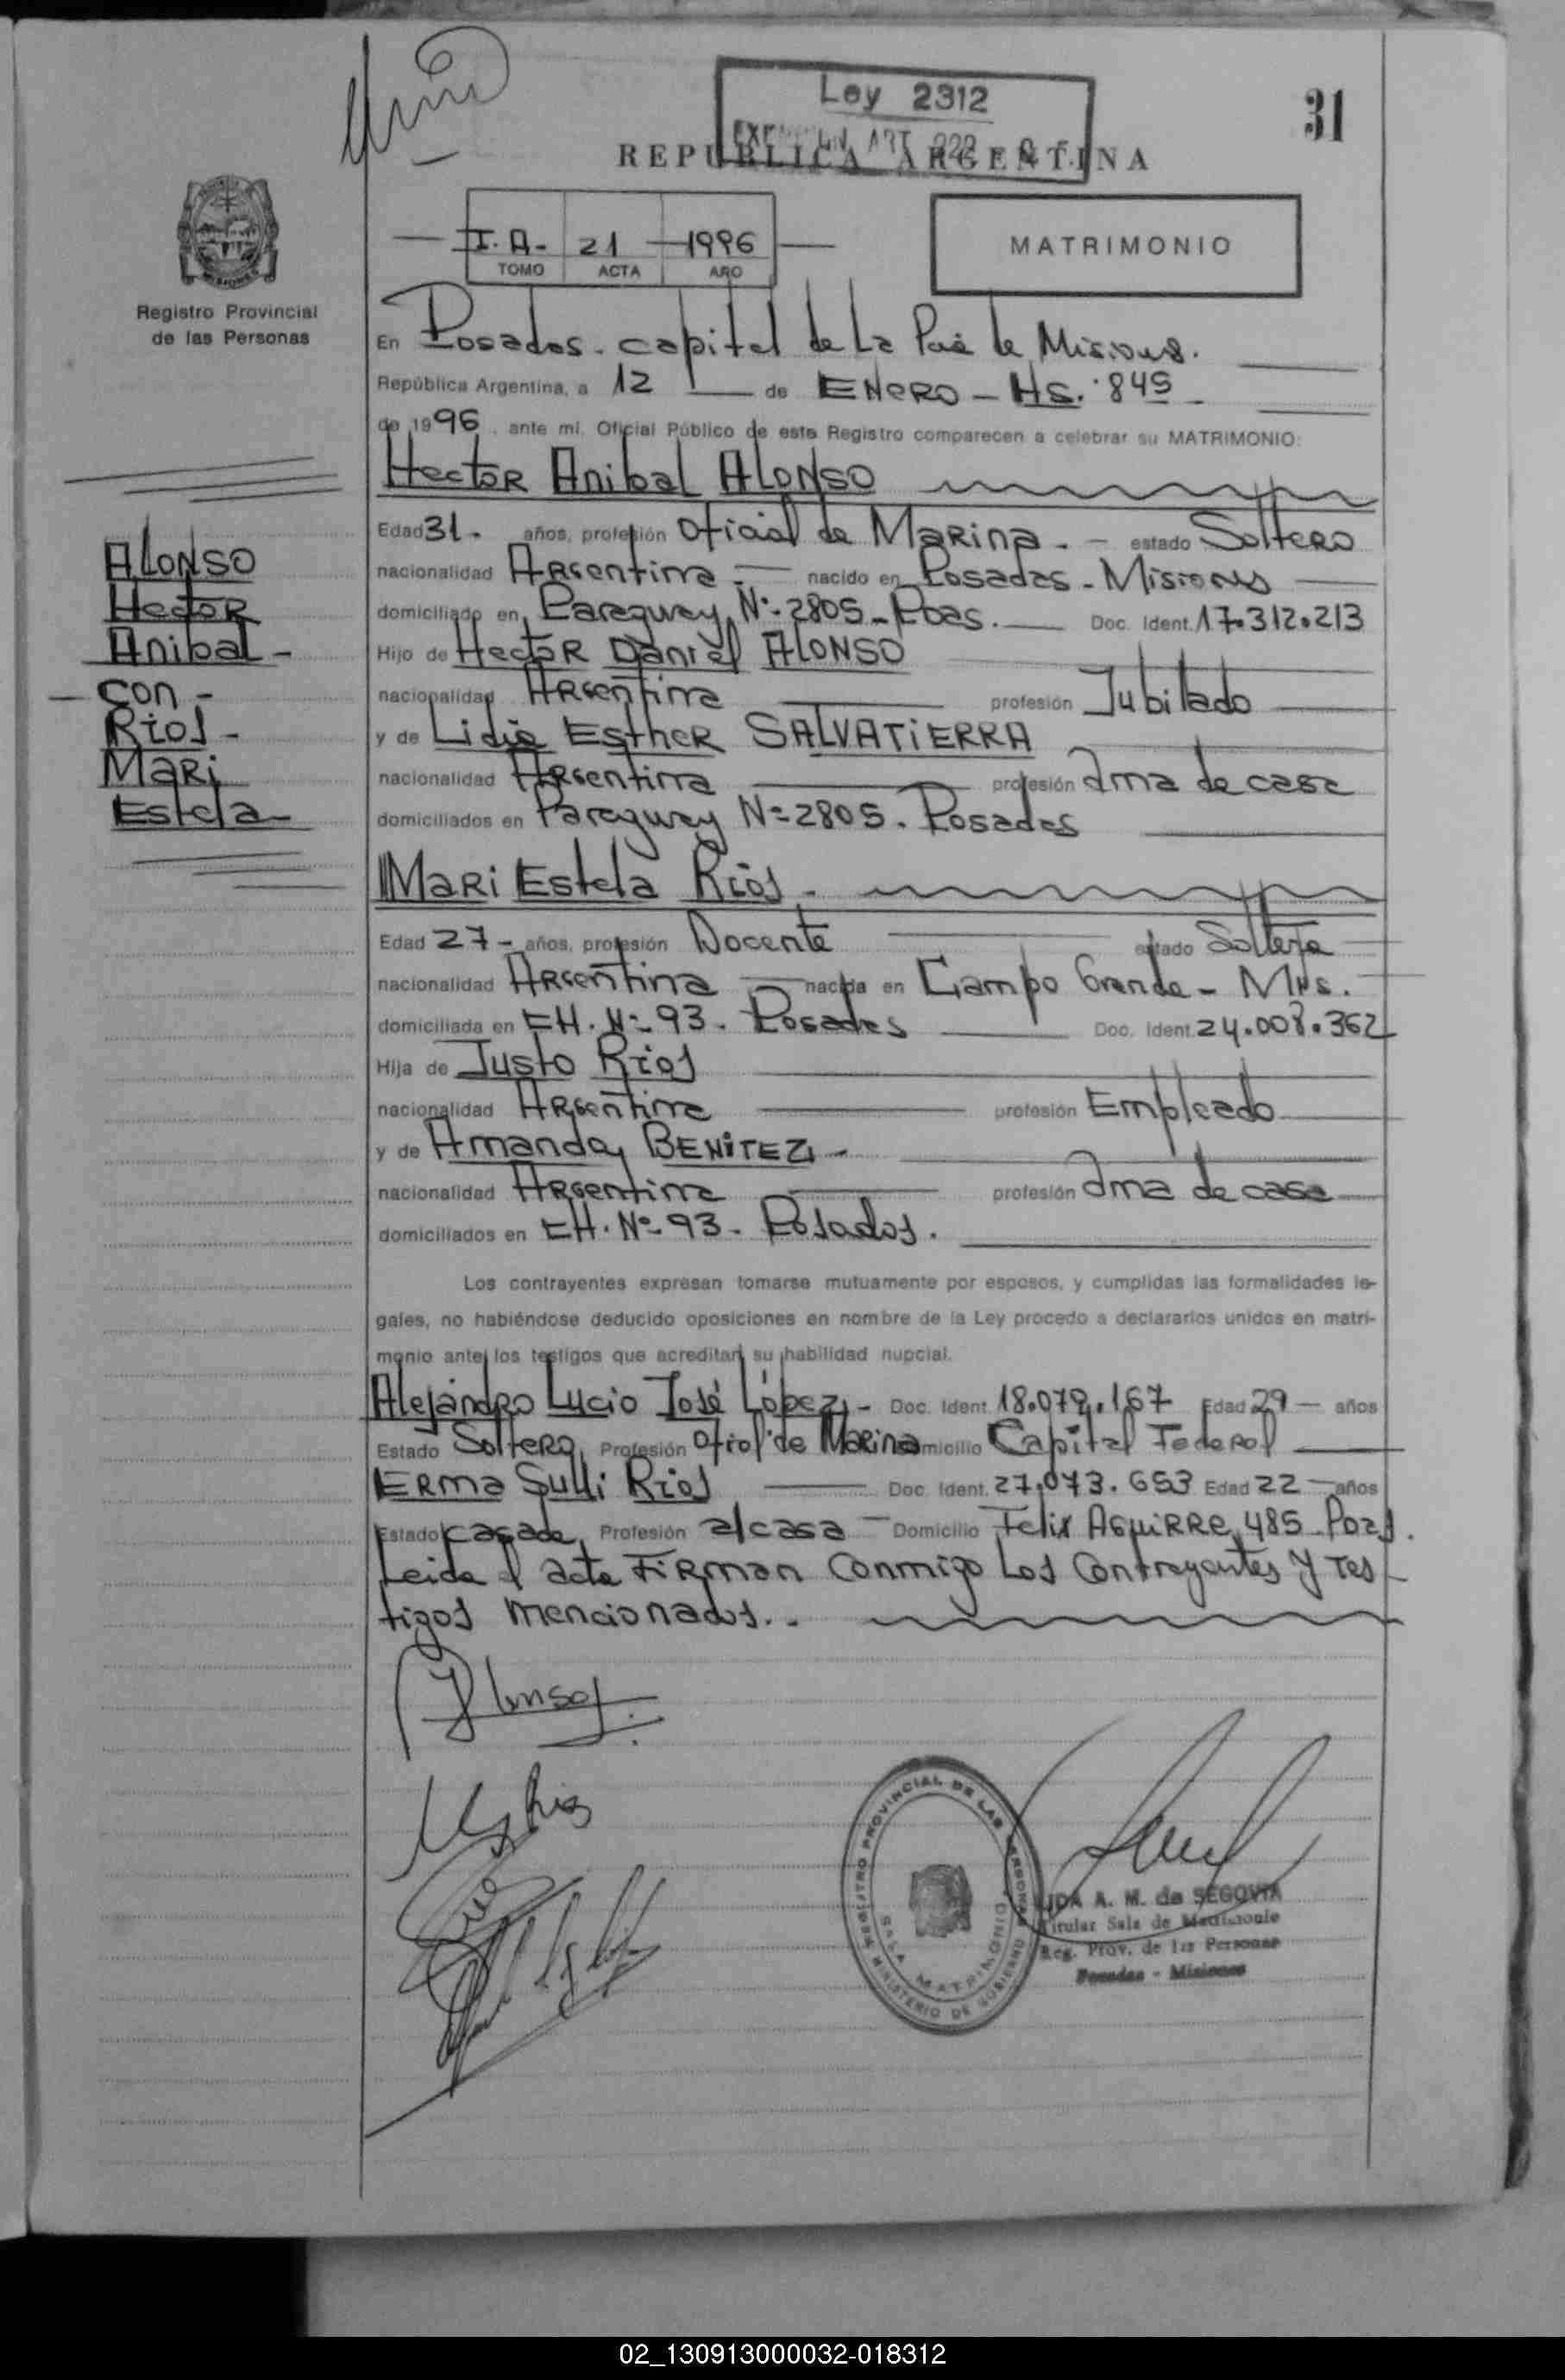 Ley 2312
31
REPUBLICA ARGENTINA
I. A- 21 1996
TOMO ACTA AÑO
MATRIMONIO
Registro Provincial
de las Personas
En Posadas. capital de La Pcia de Misiones.
República Argentina, a 12 de ENERO - Hs. 845
de 1996. ante mi. Oficial Público de este Registro comparecen a celebrar su MATRIMONIO:
Hector Anibal ALONSO
Edad 31. años, profesión Oficial de Marina. - estado Soltero
nacionalidad Argentina - nacido en Posadas - Misiones
domiciliado en Paraguay Nº- 2805 - Pdas. Doc. Ident. 17.312.213
Hijo de Hector Daniel ALONSO
nacionalidad Argentina profesión Jubilado
y de Lidia Esther SALVATIERRA
nacionalidad Argentina profesión Ama de casa
domiciliados en Paraguay Nº 2805. Posadas
ALONSO
Hector
Anibal -
- con -
Rios -
Mari
Estela
Mari Estela Rios.
Edad 27 - años, profesión Docente estado Soltera
nacionalidad Argentina nacida en Campo Grande - Mns.
domiciliada en CH. Nº 93. Posadas Doc. Ident. 24.008.362
Hija de Justo Rios
nacionalidad Argentina profesión Empleado
y de Amanda BENITEZ -
nacionalidad Argentina profesión Ama de casa
domiciliados en CH. Nº 93 - Posadas.
Los contrayentes expresan tomarse mutuamente por esposos, y cumplidas las formalidades le-
gales, no habiéndose deducido oposiciones en nombre de la Ley procedo a declararlos unidos en matri-
monio ante los testigos que acreditan su habilidad nupcial.
Alejandro Lucio José López - Doc. Ident. 18.079.167 Edad 29 - años
Estado Soltero Profesión Ofiol de Marina Domicilio Capital Federal
Erma Sulli Rios Doc. Ident. 27.073.653 Edad 22 - años
Estado casada Profesión a/casa - Domicilio Felix Aguirre 485 Pdas.
Leida el acta Firman Conmigo Los Contrayentes Y Tes-
tigos mencionados. -
Alonso
REGISTRO PROVINCIAL DE LAS PERSONAS
SALA MATRIMONIO
MINISTERIO DE GOBIERNO
A. M. de SEGOVIA
Titular Sala de Matrimonio
Reg. Prov. de las Personas
Posadas - Misiones
02_130913000032-018312